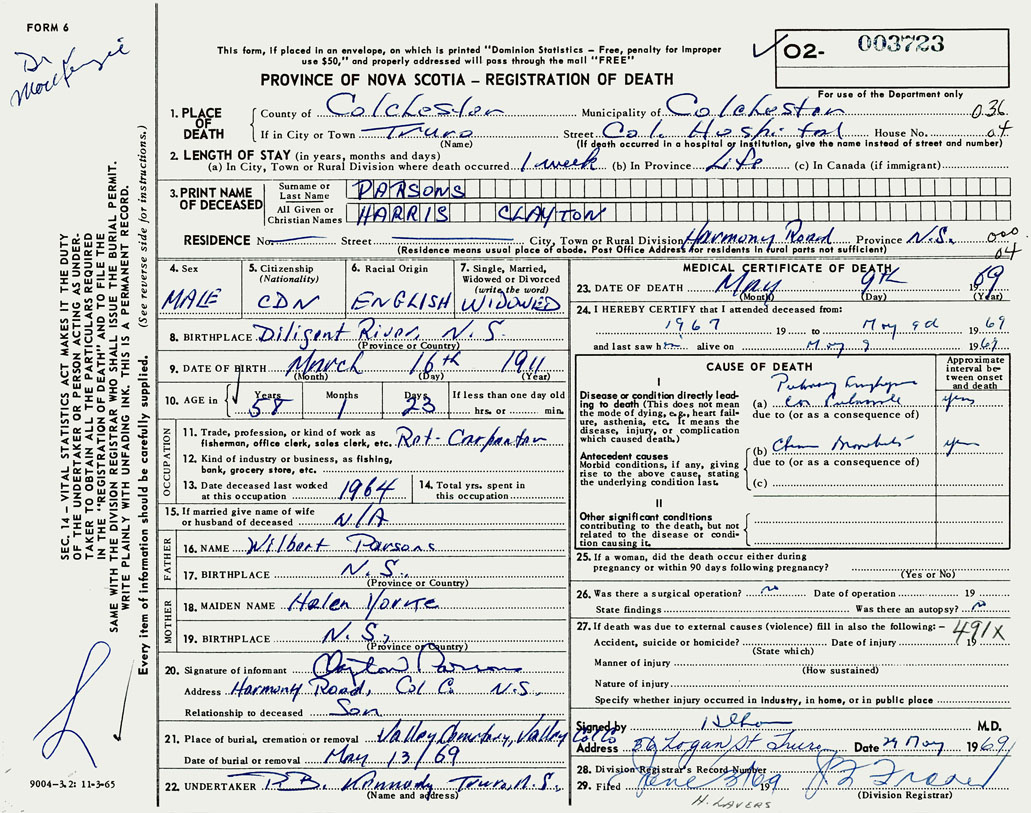 FORM 6
Dr MacKenzie
This form, if placed in an envelope, on which is printed "Dominion Statistics – Free, penalty for improper
use $50," and properly addressed will pass through the mail "FREE"
✓ O2- 003723
For use of the Department only
PROVINCE OF NOVA SCOTIA – REGISTRATION OF DEATH
1. PLACE OF DEATH
County of Colchester Municipality of Colchester 036
If in City or Town Truro Street Col. Hospital House No. 04
(Name) (If death occurred in a hospital or institution, give the name instead of street and number)
2. LENGTH OF STAY (in years, months and days)
(a) In City, Town or Rural Division where death occurred 1 week (b) In Province Life (c) In Canada (if immigrant)
3. PRINT NAME OF DECEASED
Surname or Last Name PARSONS
All Given or Christian Names HARRIS CLAYTON
RESIDENCE No. Street City, Town or Rural Division Harmony Road Province N.S. 000
(Residence means usual place of abode. Post Office Address for residents in rural parts not sufficient) 04
4. Sex MALE
5. Citizenship (Nationality) CDN
6. Racial Origin ENGLISH
7. Single, Married, Widowed or Divorced (write the word) WIDOWED
8. BIRTHPLACE Diligent River, N.S.
(Province or Country)
9. DATE OF BIRTH March 16th 1911
(Month) (Day) (Year)
10. AGE in Years 58 Months 1 Days 23 If less than one day old
hrs. or min.
OCCUPATION
11. Trade, profession, or kind of work as
fisherman, office clerk, sales clerk, etc. Ret-Carpenter
12. Kind of industry or business, as fishing,
bank, grocery store, etc.
13. Date deceased last worked
at this occupation 1964
14. Total yrs. spent in
this occupation
15. If married give name of wife
or husband of deceased N/A
FATHER
16. NAME Wilbert Parsons
17. BIRTHPLACE N.S.
(Province or Country)
MOTHER
18. MAIDEN NAME Helen Yorke
19. BIRTHPLACE N.S.
(Province or Country)
20. Signature of informant Clayton Parsons
Address Harmony Road, Col Co. N.S.
Relationship to deceased Son
21. Place of burial, cremation or removal Valley Cemetery, Valley Col Co
Date of burial or removal May 13/69
22. UNDERTAKER Kennedy Truro, N.S.
(Name and address)
MEDICAL CERTIFICATE OF DEATH
23. DATE OF DEATH May 9th 1969
(Month) (Day) (Year)
24. I HEREBY CERTIFY that I attended deceased from:
1967 19 to May 9 1969
and last saw him alive on May 9 1969
CAUSE OF DEATH
Approximate interval between onset and death
I
Disease or condition directly leading to death (This does not mean the mode of dying, e.g., heart failure, asthenia, etc. It means the disease, injury, or complication which caused death.)
(a) Pulmonary Emphysema
Cor Pulmonale yrs
due to (or as a consequence of)
Antecedent causes
Morbid conditions, if any, giving rise to the above cause, stating the underlying condition last.
(b) Chronic Bronchitis yrs
due to (or as a consequence of)
(c)
II
Other significant conditions
contributing to the death, but not related to the disease or condition causing it.
25. If a woman, did the death occur either during
pregnancy or within 90 days following pregnancy?
(Yes or No)
26. Was there a surgical operation? no Date of operation 19
State findings Was there an autopsy? no
27. If death was due to external causes (violence) fill in also the following:– 491X
Accident, suicide or homicide? Date of injury 19
(State which)
Manner of injury
(How sustained)
Nature of injury
Specify whether injury occurred in Industry, in home, or in public place
Signed by M.D.
Address Logan St Truro Date 29 May 1969
28. Division Registrar's Record Number
29. Filed June 3/69 19
(Division Registrar)
H. LAVERS
SEC. 14 – VITAL STATISTICS ACT MAKES IT THE DUTY
OF THE UNDERTAKER OR PERSON ACTING AS UNDER-
TAKER TO OBTAIN ALL THE PARTICULARS REQUIRED
IN THE "REGISTRATION OF DEATH" AND TO FILE THE
SAME WITH THE DIVISION REGISTRAR WHO SHALL ISSUE THE BURIAL PERMIT.
WRITE PLAINLY WITH UNFADING INK. THIS IS A PERMANENT RECORD.
Every item of information should be carefully supplied. (See reverse side for instructions.)
9004–3.2: 11-3-65